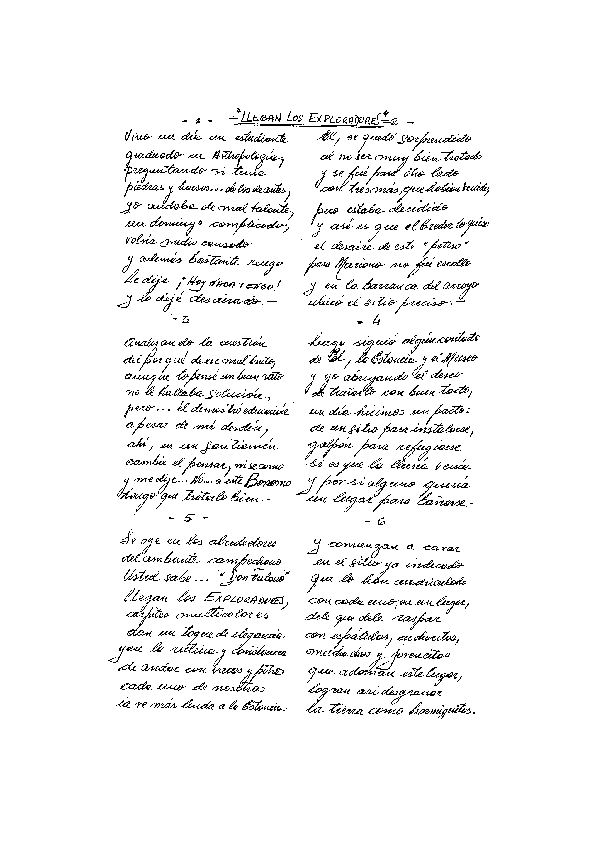 "LLEGAN LOS EXPLORADORES"
- 1 -
Vino un día un estudiante
graduado en Antropología,
preguntando si tenía
piedras y huesos... de los de antes,
yo andaba de mal talante,
un domingo complicado,
volvía medio cansado
y además bastante ciego
Le dije ¡Hoy once racso!
y lo dejé desairado. -
- 2 -
El, se quedó sorprendido
al no ser muy bien tratado
y se fué para otro lado
con tres más, que habían venido,
pero estaba decidido
y así es que el hombre lo quiso
el desaire de este "petiso"
pero Mariano no fué escollo
y en la barranca del arroyo
ubicó el sitio preciso. -
- 3 -
Analizando la cuestión
del por qué de ese mal trato,
aunque lo pensé un buen rato
no le hallaba solución,
pero... él demostró educación
a pesar de mi desdén,
ahí, en un santiamén
cambié el pensar, ni se como
y me dije... No... a este
tengo que tratarlo bien. -
- 4 -
Luego siguió algún contacto
de El, la Estancia y el Museo
y yo abrigando el deseo
de tratarlo con buen tacto,
un día hicimos un pacto:
de un sitio para instalarse,
galpón para refugiarse
si es que la lluvia venía
y por si alguno quería
un lugar para bañarse. -
- 5 -
Se oye en los alrededores
del ambiente campechano
Usted sabe... "Don Fulano"
llegan los EXPLORADORES,
carpitas multicolores
dan un toque de elegancia
y en la rutina y constancia
de andar con vacas y potros
cada uno de nosotros
ia ve más linda a la Estancia.
- 6 -
Y comienzan a cavar
en el sitio ya indicado
que lo han cuadriculado
con cada uno, en un lugar,
dele que dele raspar
con espátulas, cucharitas,
medidas y pincelitos
que adornan este lugar,
logran así desgranar
la tierra como hormiguitas.